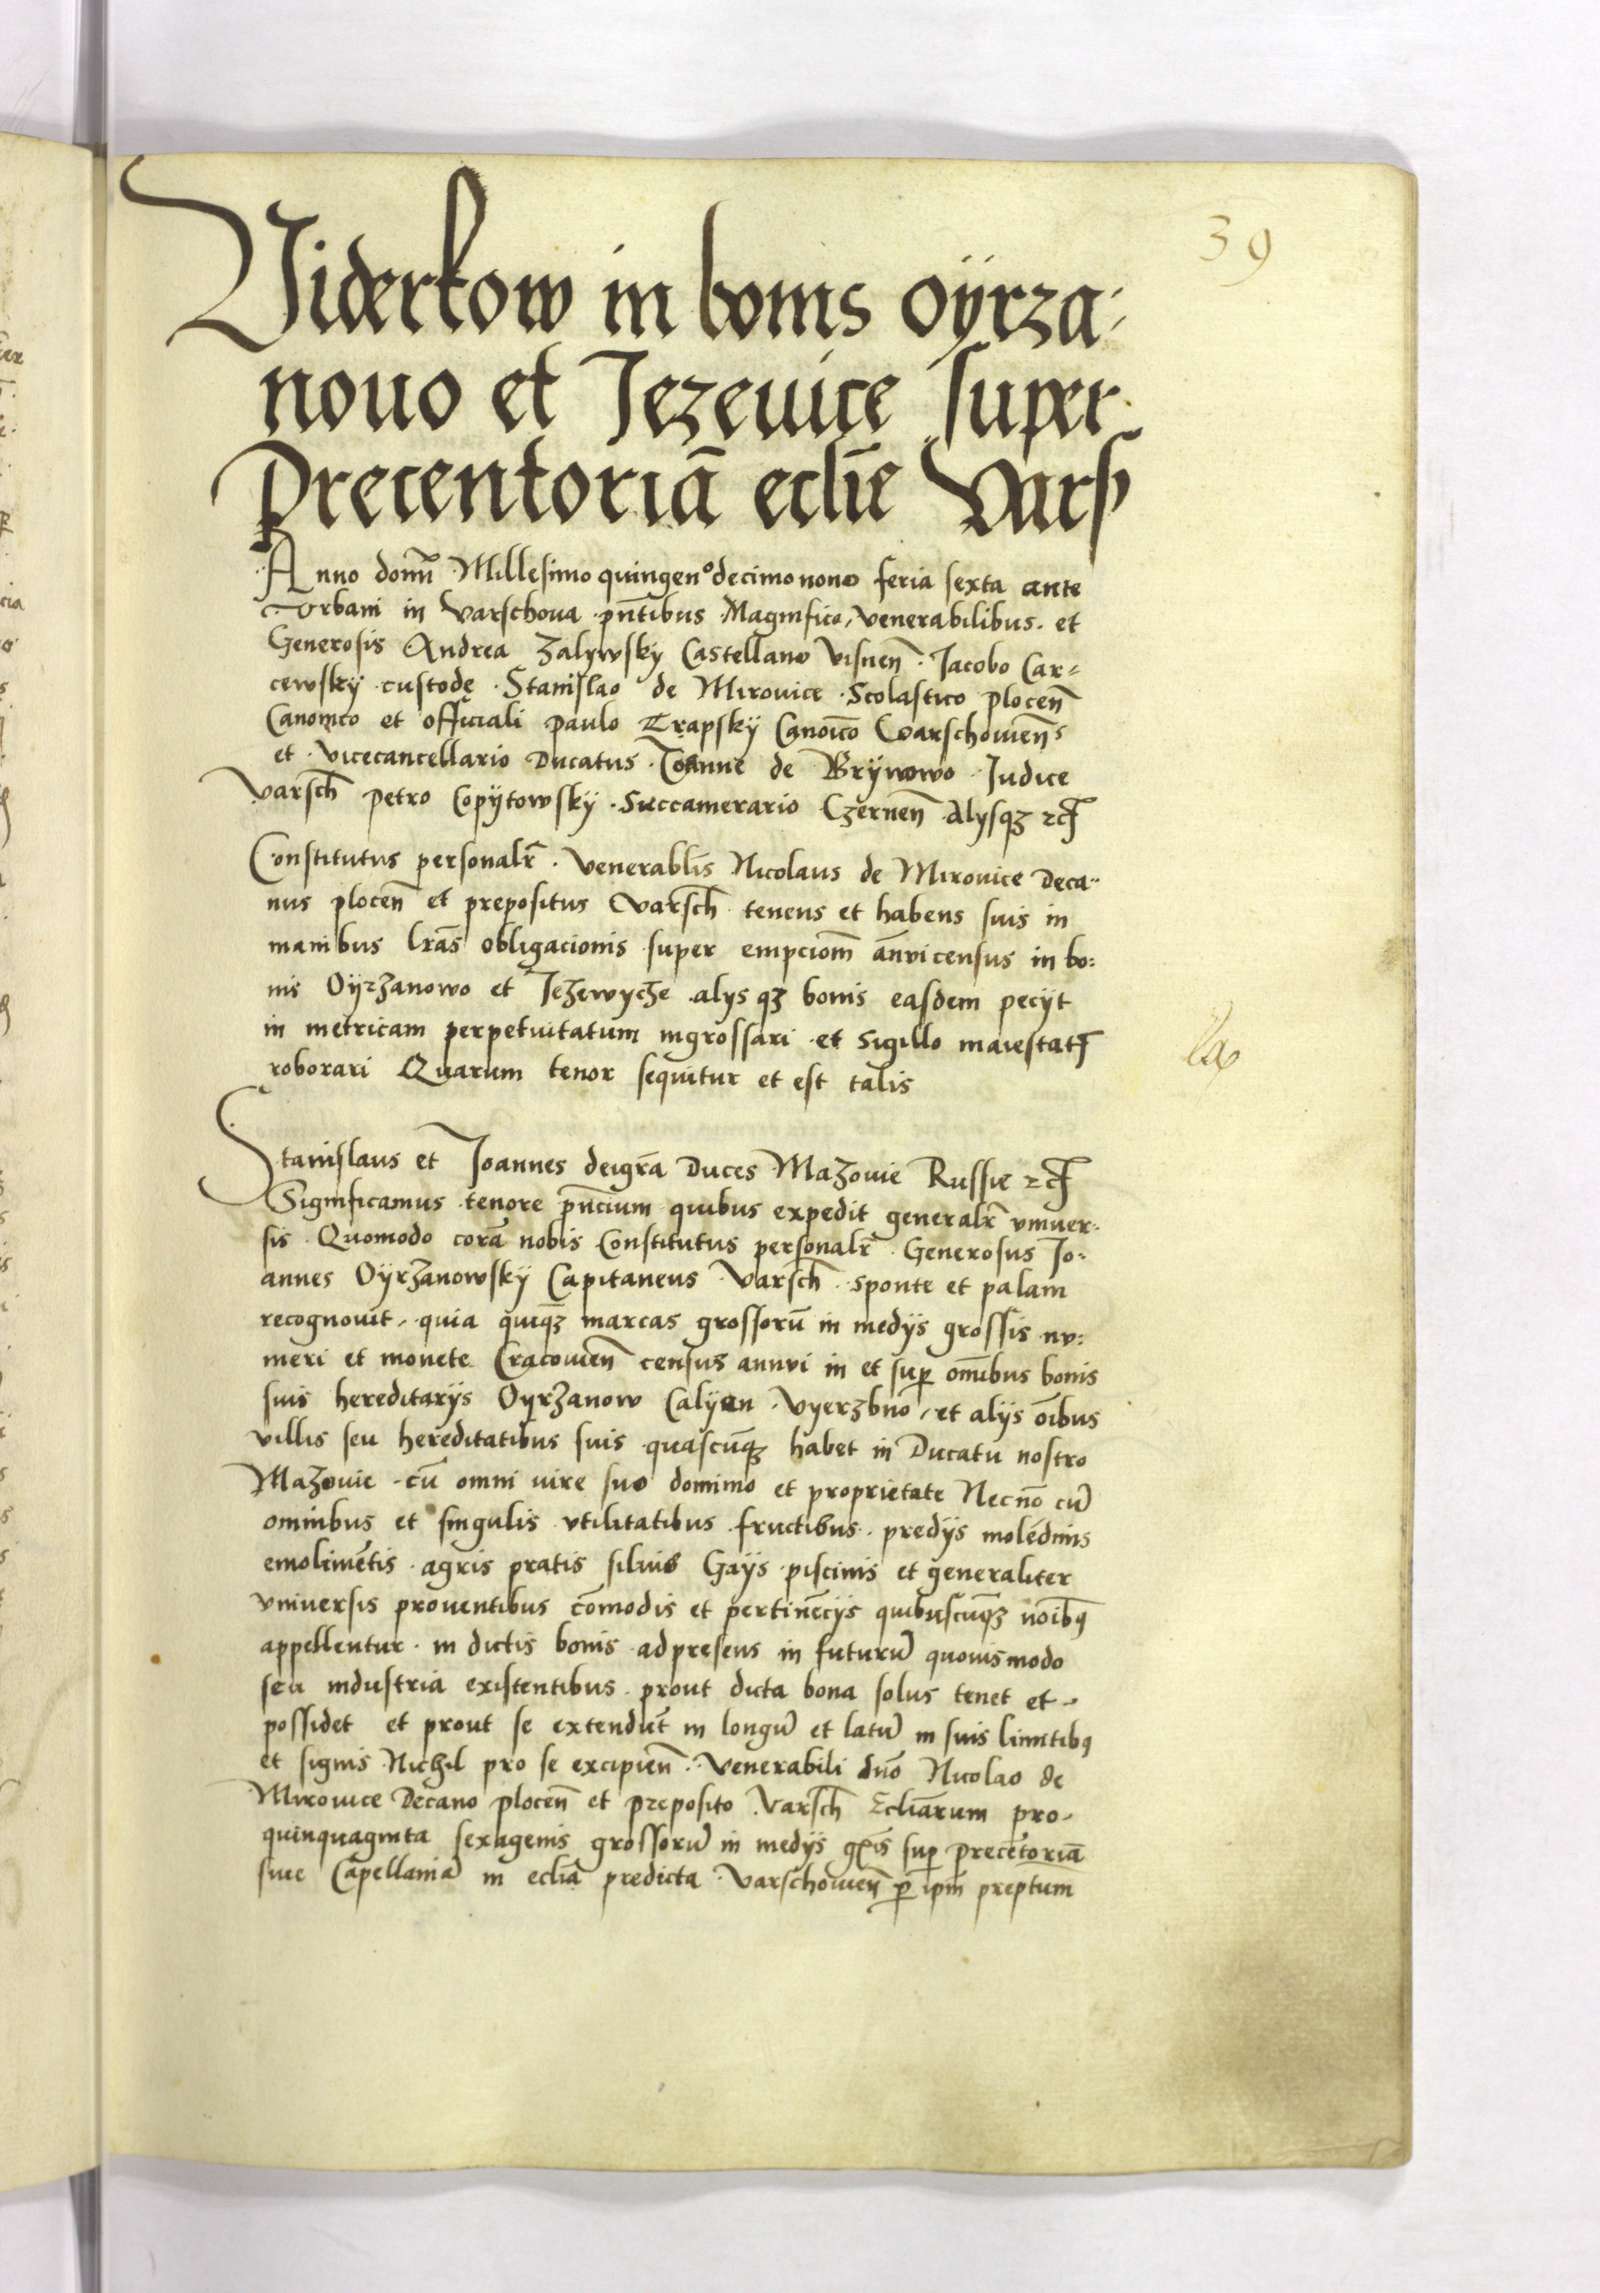 39
Viderkow in bonis oÿrza-
nouo et Jezeuice super
Precentoriā eccliē Vars
Anno domī Millesimo quingenº decimonono feria sexta ante
Vrbani in Varschoua pn̄tibus Magnifico, venerabilibus et
Generosis Andrea Zalywsky Castellano Visnen̄ Jacobo Car-
cewskÿ custode Stanislao de Mirouice Scolastico plocen̄
Canonico et officiali paulo Trapskÿ Canoīco Warschouien̄s
et vicecancellario Ducatus Joanne de Brÿwowo Judice
varsch̄ petro Copÿtowskÿ Succamerario Czernen̄ Alysqȝ ⁊cꝭ
Constitutus personalr̄ venerablis Nicolaus de Mirouice Deca-
nus plocen̄ et prepositus Varsch̄ tenens et habens suis in
manibus lrās obligacionis super empciom̄ an̄ui census in bo:
nis Oÿrzanowo et Jezewycze alys qȝ bonis easdem pecÿt
in metricam perpetuitatum ingrossari et sigillo maiestatꝭ
roborari Quarum tenor sequitur et est talis
Stanislaus et Joannes deigrā Duces Mazouie Russie ⁊cꝭ
Significamus tenore pn̄cium quibus expedit generalr̄ vniuer-
sis Quomodo corā nobis Constitutus personalr̄ Generosus Jo-
annes Oÿrzanowskÿ Capitaneus Varsch̄ sponte et palam
recognouit, quia quiqȝ marcas grossorū in medÿs grossis nu:
meri et monete Cracouien̄ census annui in et suꝑ omībus bonis
suis hereditarÿs Oyrzanow Calyen Vyerzbno, et alÿs oībus
villis seu hereditatibus suis quascūqȝ habet in Ducatu nostro
Mazouie cū omni iure suo dominio et proprietate Necnō cū
omnibus et singulis vtilitatibus fructibus predÿs molēdinis
emolimētis agris pratis siluis Gaÿs piscinis et generaliter
vniuersis prouentibus cōmodis et pertinēcÿs quibuscūqȝ noībꝫ
appellentur in dictis bonis ad presens in futurū quouismodo
seu industria existentibus prout dicta bona solus tenet et
possidet et prout se extendūt in longū et latū in suis limitibꝫ
et signis Nichil pro se excipien̄ Venerabili dn̄o Nicolao de
Mirouice Decano plocen̄ et preposito Varsch̄ Ecliārum pro
quinquaginta sexagenis grossorū in medÿs gr̄is suꝑ precētoriā
siue Capellaniā in ecliā predicta Varschouien̄ ꝑ ipm̄ preptum̄